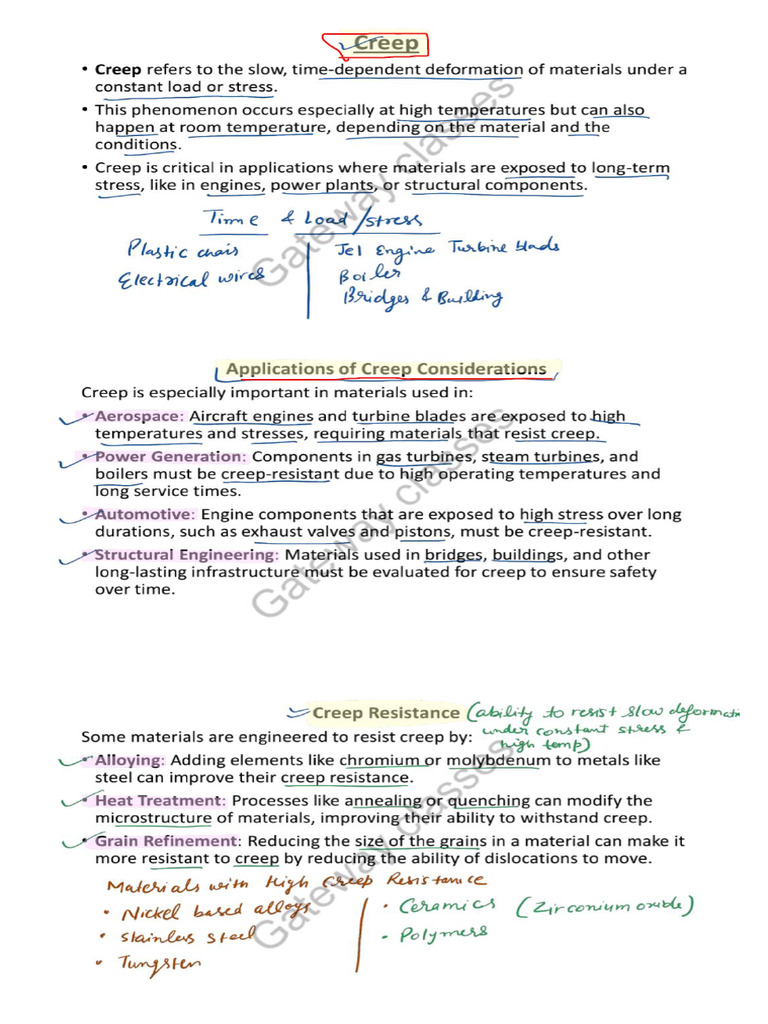 Creep
• Creep refers to the slow, time-dependent deformation of materials under a
constant load or stress.
• This phenomenon occurs especially at high temperatures but can also
happen at room temperature, depending on the material and the
conditions.
• Creep is critical in applications where materials are exposed to long-term
stress, like in engines, power plants, or structural components.
Time & Load/stress
Plastic chais
Electrical wires
Jel Engine Turbine blads
Boiler
Bridges & Building
Gateway classes
Applications of Creep Considerations
Creep is especially important in materials used in:
• Aerospace: Aircraft engines and turbine blades are exposed to high
temperatures and stresses, requiring materials that resist creep.
• Power Generation: Components in gas turbines, steam turbines, and
boilers must be creep-resistant due to high operating temperatures and
long service times.
• Automotive: Engine components that are exposed to high stress over long
durations, such as exhaust valves and pistons, must be creep-resistant.
• Structural Engineering: Materials used in bridges, buildings, and other
long-lasting infrastructure must be evaluated for creep to ensure safety
over time.
Gateway classes
Creep Resistance (ability to resist slow deformati
under constant stress &
high temp)
Some materials are engineered to resist creep by:
• Alloying: Adding elements like chromium or molybdenum to metals like
steel can improve their creep resistance.
• Heat Treatment: Processes like annealing or quenching can modify the
microstructure of materials, improving their ability to withstand creep.
• Grain Refinement: Reducing the size of the grains in a material can make it
more resistant to creep by reducing the ability of dislocations to move.
Materials with High Creep Resistance
• Nickel based alloys
• Stainless steel
• Tungsten
• Ceramics (Zirconium oxide)
• Polymers
Gateway classes